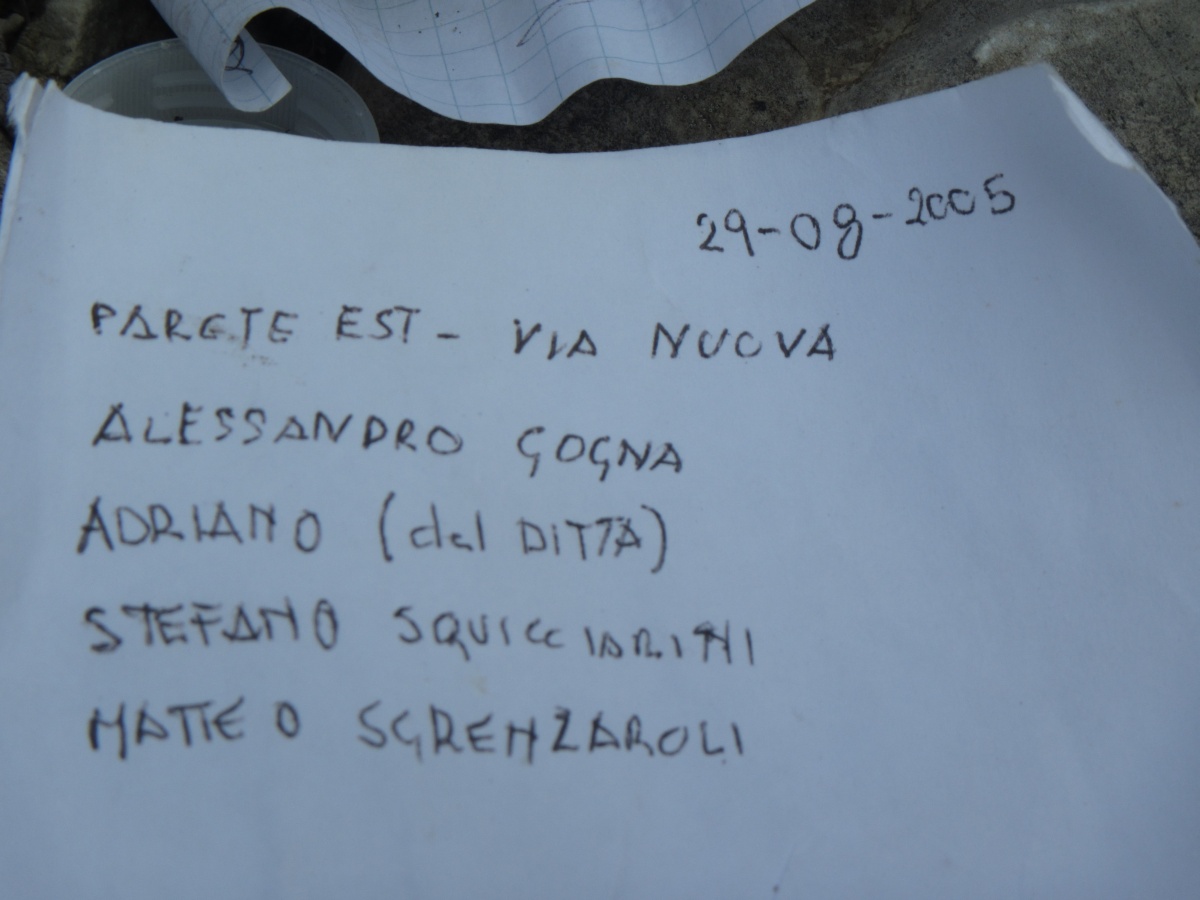 29-08-2005
PARETE EST - VIA NUOVA
ALESSANDRO GOGNA
ADRIANO (del DITTA)
STEFANO SQUICCIARINI
MATTEO SGRENZAROLI